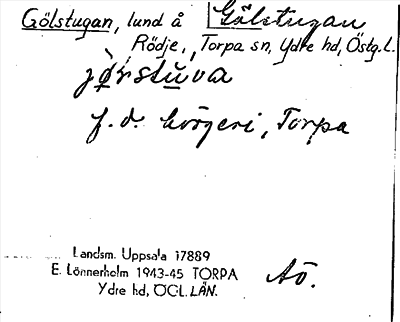 Gölstugan, lund å Gölstugan
Rödje, Torpa sn, Ydre hd, Östg. l.
f. d. , Torpa
Landsm. Uppsala 17889
E. Lönnerholm 1943-45 TORPA
Ydre hd, ÖGL. LÄN.
AÖ.